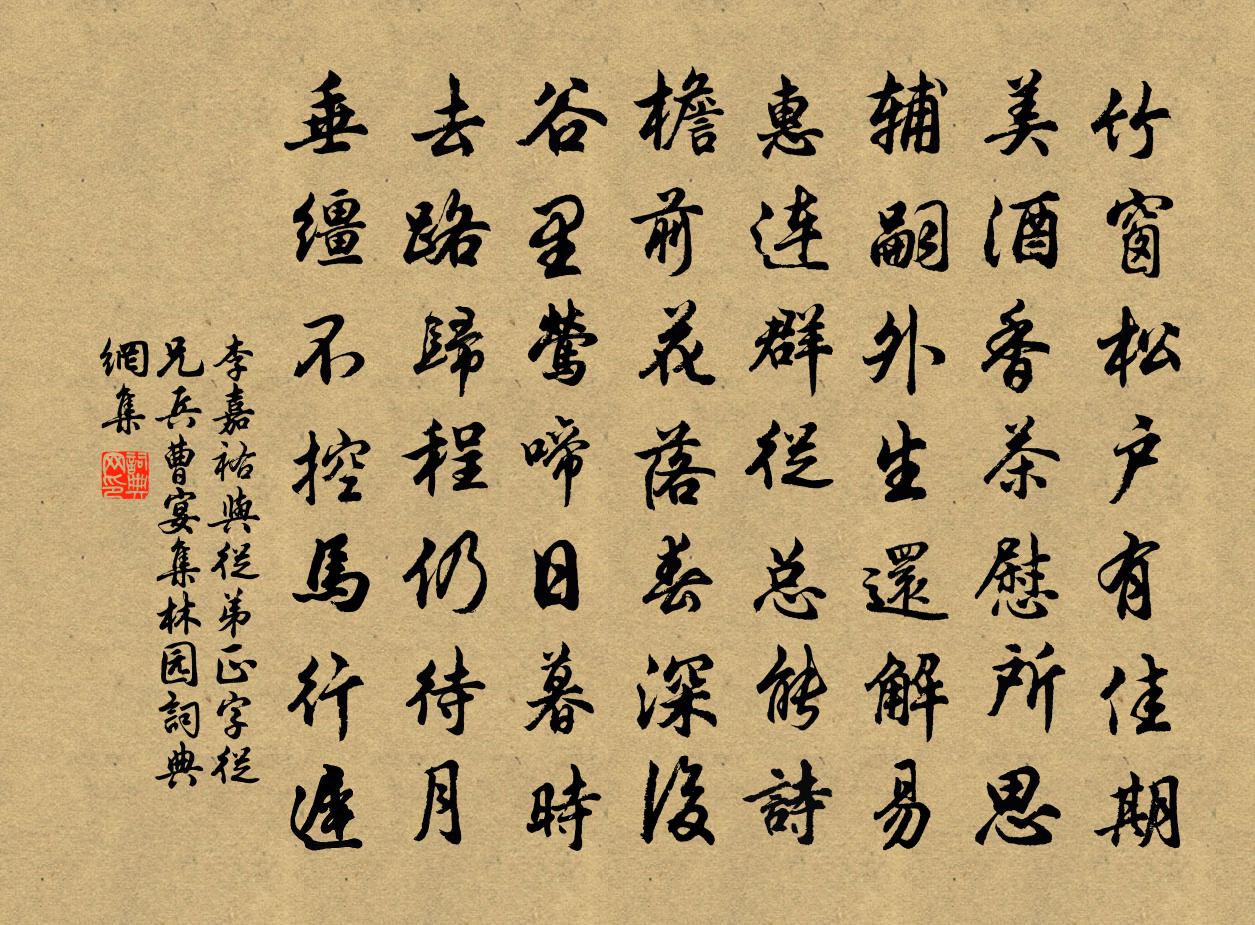 竹窗松户有佳期
美酒香茶慰所思
辅嗣外生還解易
惠連群從总能詩
檐前花落春深後
谷里莺啼日暮時
去路歸程仍待月
垂缰不控馬行遲
李嘉祐與從弟正字從
兄兵曹宴集林园詞典
網集
詞典
网印